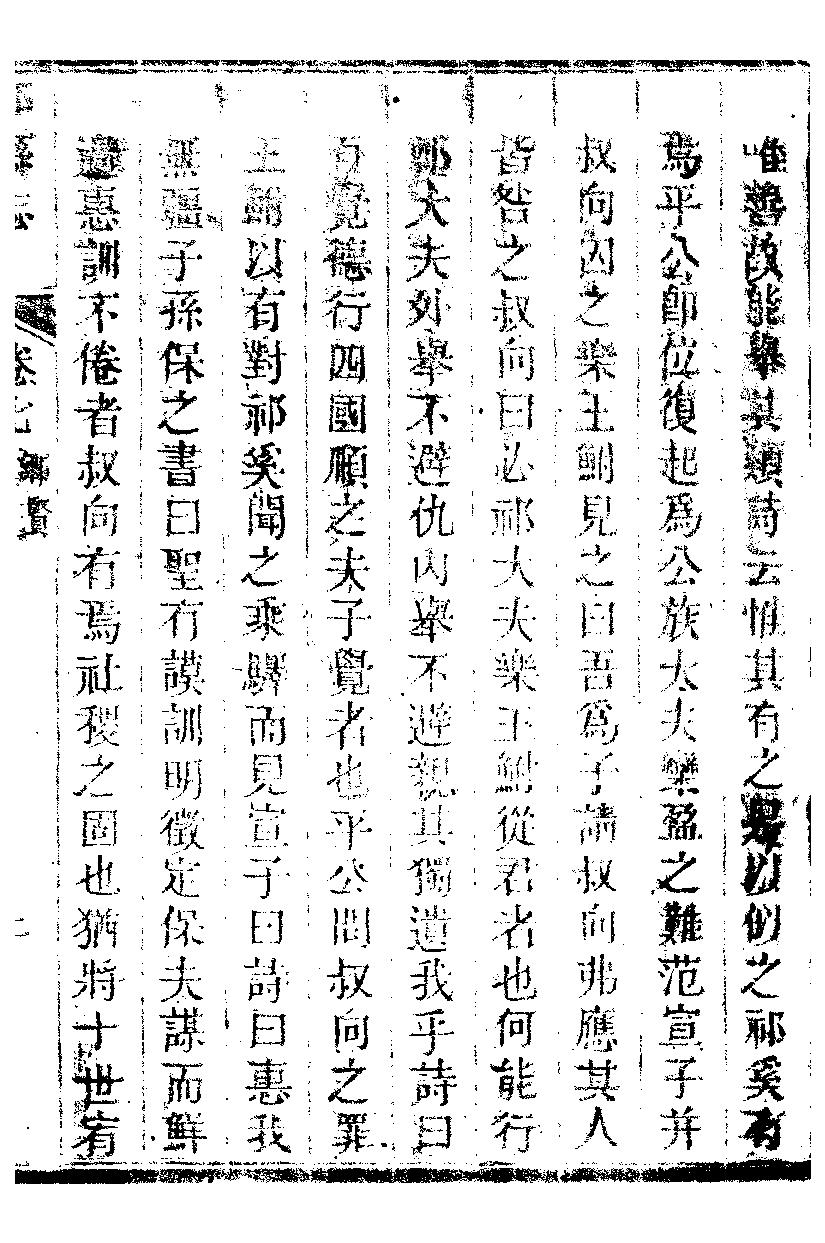 唯善故能舉其類詩云惟其有之是以似之祁奚有
焉平公卽位復起爲公族大夫欒盈之難范宣子并
叔向囚之樂王鮒見之曰吾爲子請叔向弗應其人
皆咎之叔向曰必祁大夫樂王鮒從君者也何能行
鄭大夫外舉不避仇內舉不避親其獨遺我乎詩曰
有覺德行四國順之夫子覺者也平公問叔向之罪
王鮒以有對祁奚聞之乘驛而見宣子曰詩曰惠我
無疆子孫保之書曰聖有謨訓明徵定保夫謀而鮮
過惠訓不倦者叔向有焉社稷之固也猶將十世宥
卷七 鄉賢